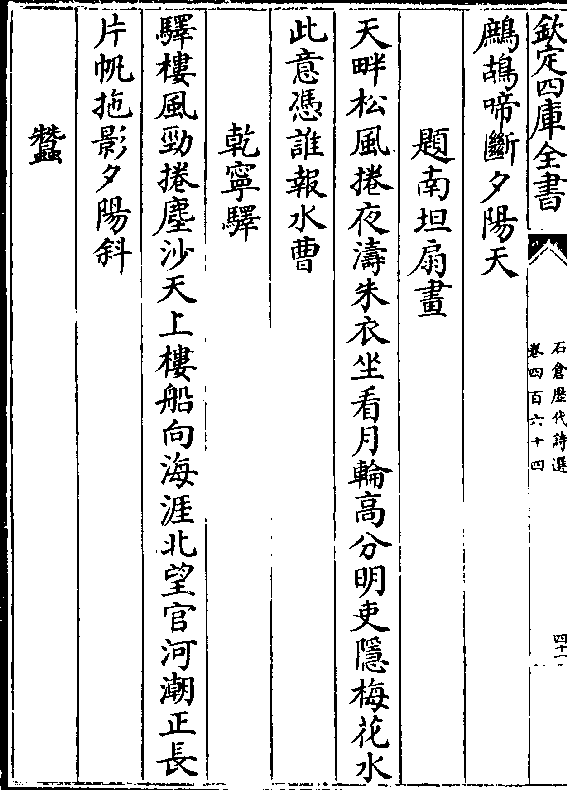 欽定四庫全書
石倉歴代詩選
卷四百六十四
鷓鴣啼斷夕陽天
題南坦扇畫
天畔松風捲夜濤朱衣坐看月輪高分明吏隱梅花水
此意憑誰報水曹
乾寧驛
驛樓風勁捲塵沙天上樓船向海涯北望官河潮正長
片帆拖影夕陽斜
蠶